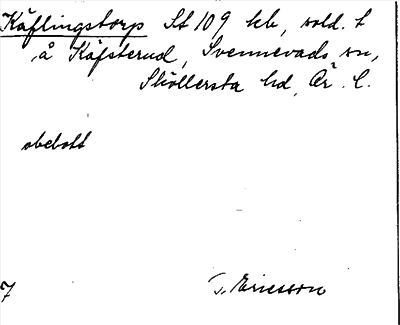 Käflingstorp St 109 kb, sold. t
å Käfsterud, Svennevads sn,
Sköllersta hd, Ör. l.
obebott
7 T. Ericsson